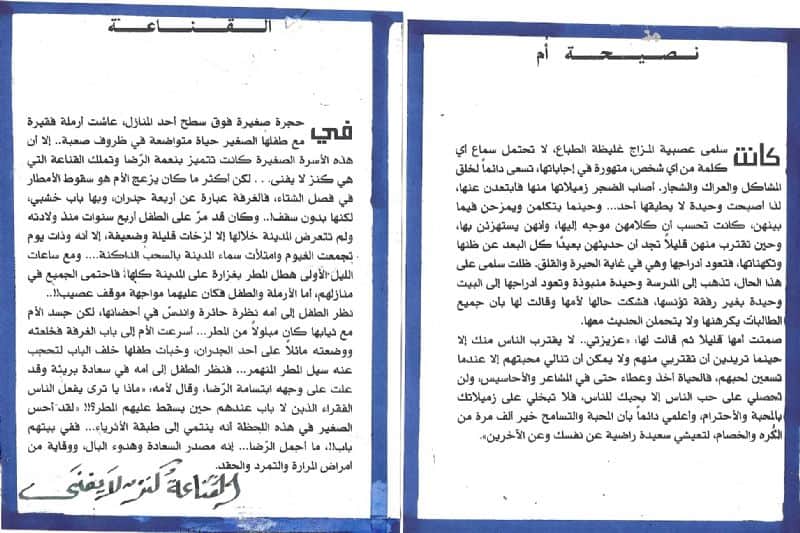 نصيحة أم
كانت سلمى عصبية المزاج غليظة الطباع، لا تحتمل سماع أي
كلمة من أي شخص، متهورة في إجاباتها، تسعى دائماً لخلق
المشاكل والعراك والشجار. أصاب الضجر زميلاتها منها فابتعدن عنها،
لذا أصبحت وحيدة لا يطيقها أحد... وحينما يتكلمن ويمزحن فيما
بينهن، كانت تحسب أن كلامهن موجه إليها، وأنهن يستهزئن بها،
وحين تقترب منهن قليلاً تجد أن حديثهن بعيدًا كل البعد عن ظنها
وتكهناتها، فتعود أدراجها وهي في غاية الحيرة والقلق. ظلت سلمى على
هذا الحال، تذهب إلى المدرسة وحيدة منبوذة وتعود أدراجها إلى البيت
وحيدة بغير رفقة تؤنسها، فشكت حالها لأمها وقالت لها بأن جميع
الطالبات يكرهنها ولا يتحملن الحديث معها.
صمتت أمها قليلاً ثم قالت لها: «عزيزتي.. لا يقترب الناس منك إلا
حينما تريدين أن تقتربي منهم ولا يمكن أن تنالي محبتهم إلا عندما
تسعين لحبهم، فالحياة أخذ وعطاء حتى في المشاعر والأحاسيس، ولن
تحصلي على حب الناس إلا بحبك للناس، فلا تبخلي على زميلاتك
بالمحبة والأحترام، وأعلمي دائماً بأن المحبة والتسامح خير ألف مرة من
الكُره والخصام، لتعيشي سعيدة راضية عن نفسك وعن الآخرين».
القناعة
في حجرة صغيرة فوق سطح أحد المنازل، عاشت أرملة فقيرة
مع طفلها الصغير حياة متواضعة في ظروف صعبة.. إلا أن
هذه الأسرة الصغيرة كانت تتميز بنعمة الرّضا وتملك القناعة التي
هي كنز لا يفنى. . . لكن أكثر ما كان يزعج الأم هو سقوط الأمطار
في فصل الشتاء، فالغرفة عبارة عن أربعة جدران، وبها باب خشبي،
لكنها بدون سقف!.. وكان قد مرّ على الطفل أربع سنوات منذ ولادته
ولم تتعرض المدينة خلالها إلا لزخات قليلة وضعيفة، إلا أنه وذات يوم
تجمعت الغيوم وامتلأت سماء المدينة بالسحب الداكنة.... ومع ساعات
الليل الأولى هطل المطر بغزارة على المدينة كلها، فاحتمى الجميع في
منازلهم، أما الأرملة والطفل فكان عليهما مواجهة موقف عصيب!!..
نظر الطفل إلى أمه نظرة حائرة واندسّ في أحضانها، لكن جسد الأم
مع ثيابها كان مبلولاً من المطر... أسرعت الأم إلى باب الغرفة فخلعته
ووضعته مائلاً على أحد الجدران، وخبأت طفلها خلف الباب لتحجب
عنه سيل المطر المنهمر... فنظر الطفل إلى أمه في سعادة بريئة وقد
علت على وجهه ابتسامة الرّضا، وقال لأمه: «ماذا يا ترى يفعل الناس
الفقراء الذين لا باب عندهم حين يسقط عليهم المطر؟!!» لقد أحس
الصغير في هذه اللحظة أنه ينتمي إلى طبقة الأثرياء... ففي بيتهم
باب!!، ما أجمل الرّضا... إنه مصدر السعادة وهدوء البال، ووقاية من
أمراض المرارة والتمرد والحقد.
القناعة كنز لا يفنى